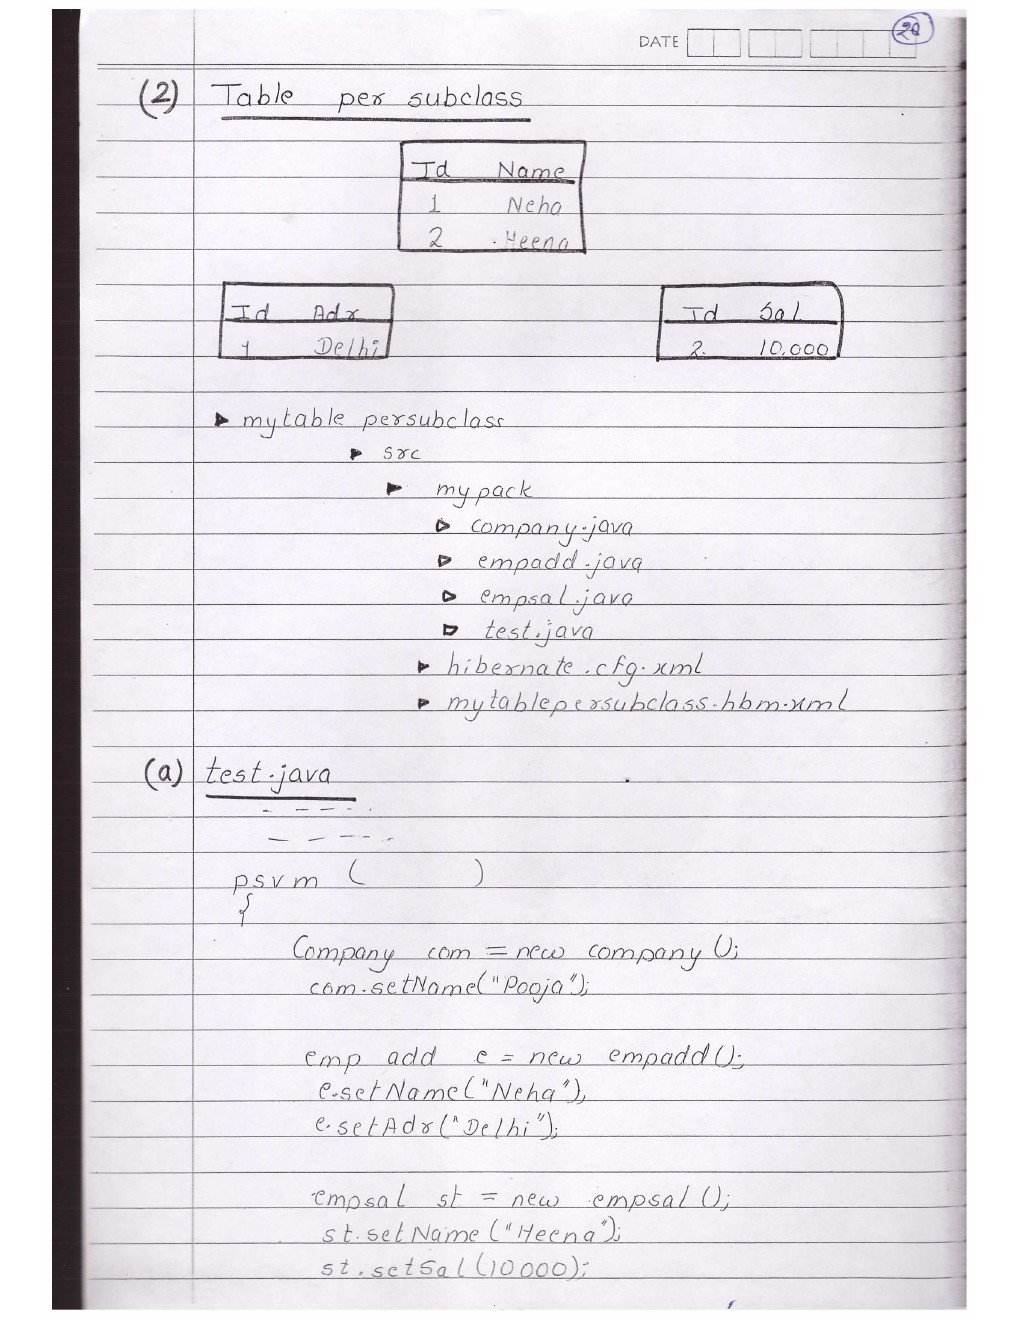 DATE
28
(2) Table per subclass
Id Name
1 Neha
2 Heena
Id Adr
1 Delhi
Id Sal
2. 10,000
mytable persubclass
src
my pack
company.java
empadd.java
empsal.java
test.java
hibernate.cfg.xml
mytablepersubclass.hbm.xml
(a) test.java
psvm ( )
{
Company com = new company ();
com.setName("Pooja");
emp add e = new empadd();
e.setName("Neha");
e.setAdr("Delhi");
empsal st = new empsal ();
st.setName ("Heena");
st.setSal(10000);